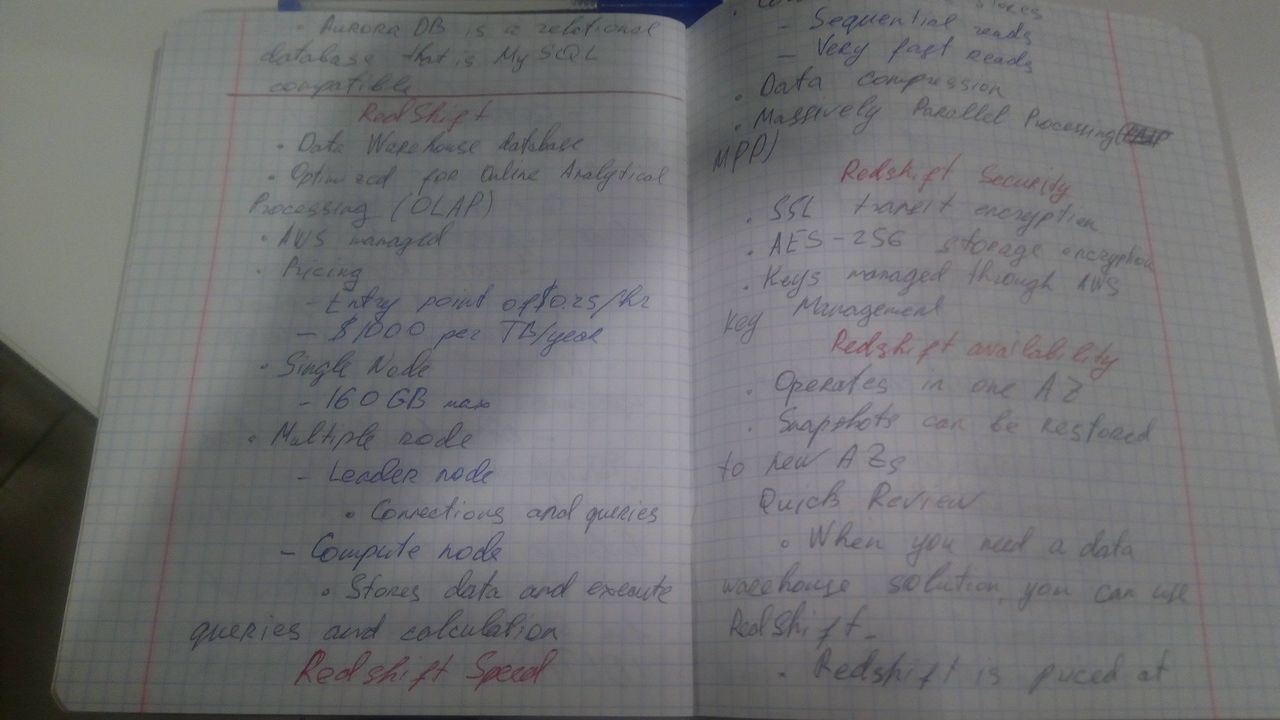 • Aurora DB is a relational
database that is MySQL
compatible
RedShift
• Data Warehouse database
• Optimized for Online Analytical
Processing (OLAP)
• AWS managed
• Pricing
- Entry point of $0.25/hr
- $1000 per TB/year
• Single Node
- 160 GB max
• Multiple node
- Leader node
• Connections and queries
- Compute node
• Stores data and execute
queries and calculation
Redshift Speed
- Sequential reads
- Very fast reads
• Data compression
• Massively Parallel Processing (
MPP)
Redshift Security
• SSL transit encryption
• AES-256 storage encryption
• Keys managed through AWS
Key Management
Redshift availability
• Operates in one AZ
• Snapshots can be restored
to new AZs
Quick Review
• When you need a data
warehouse solution, you can use
RedShift.
• Redshift is priced at